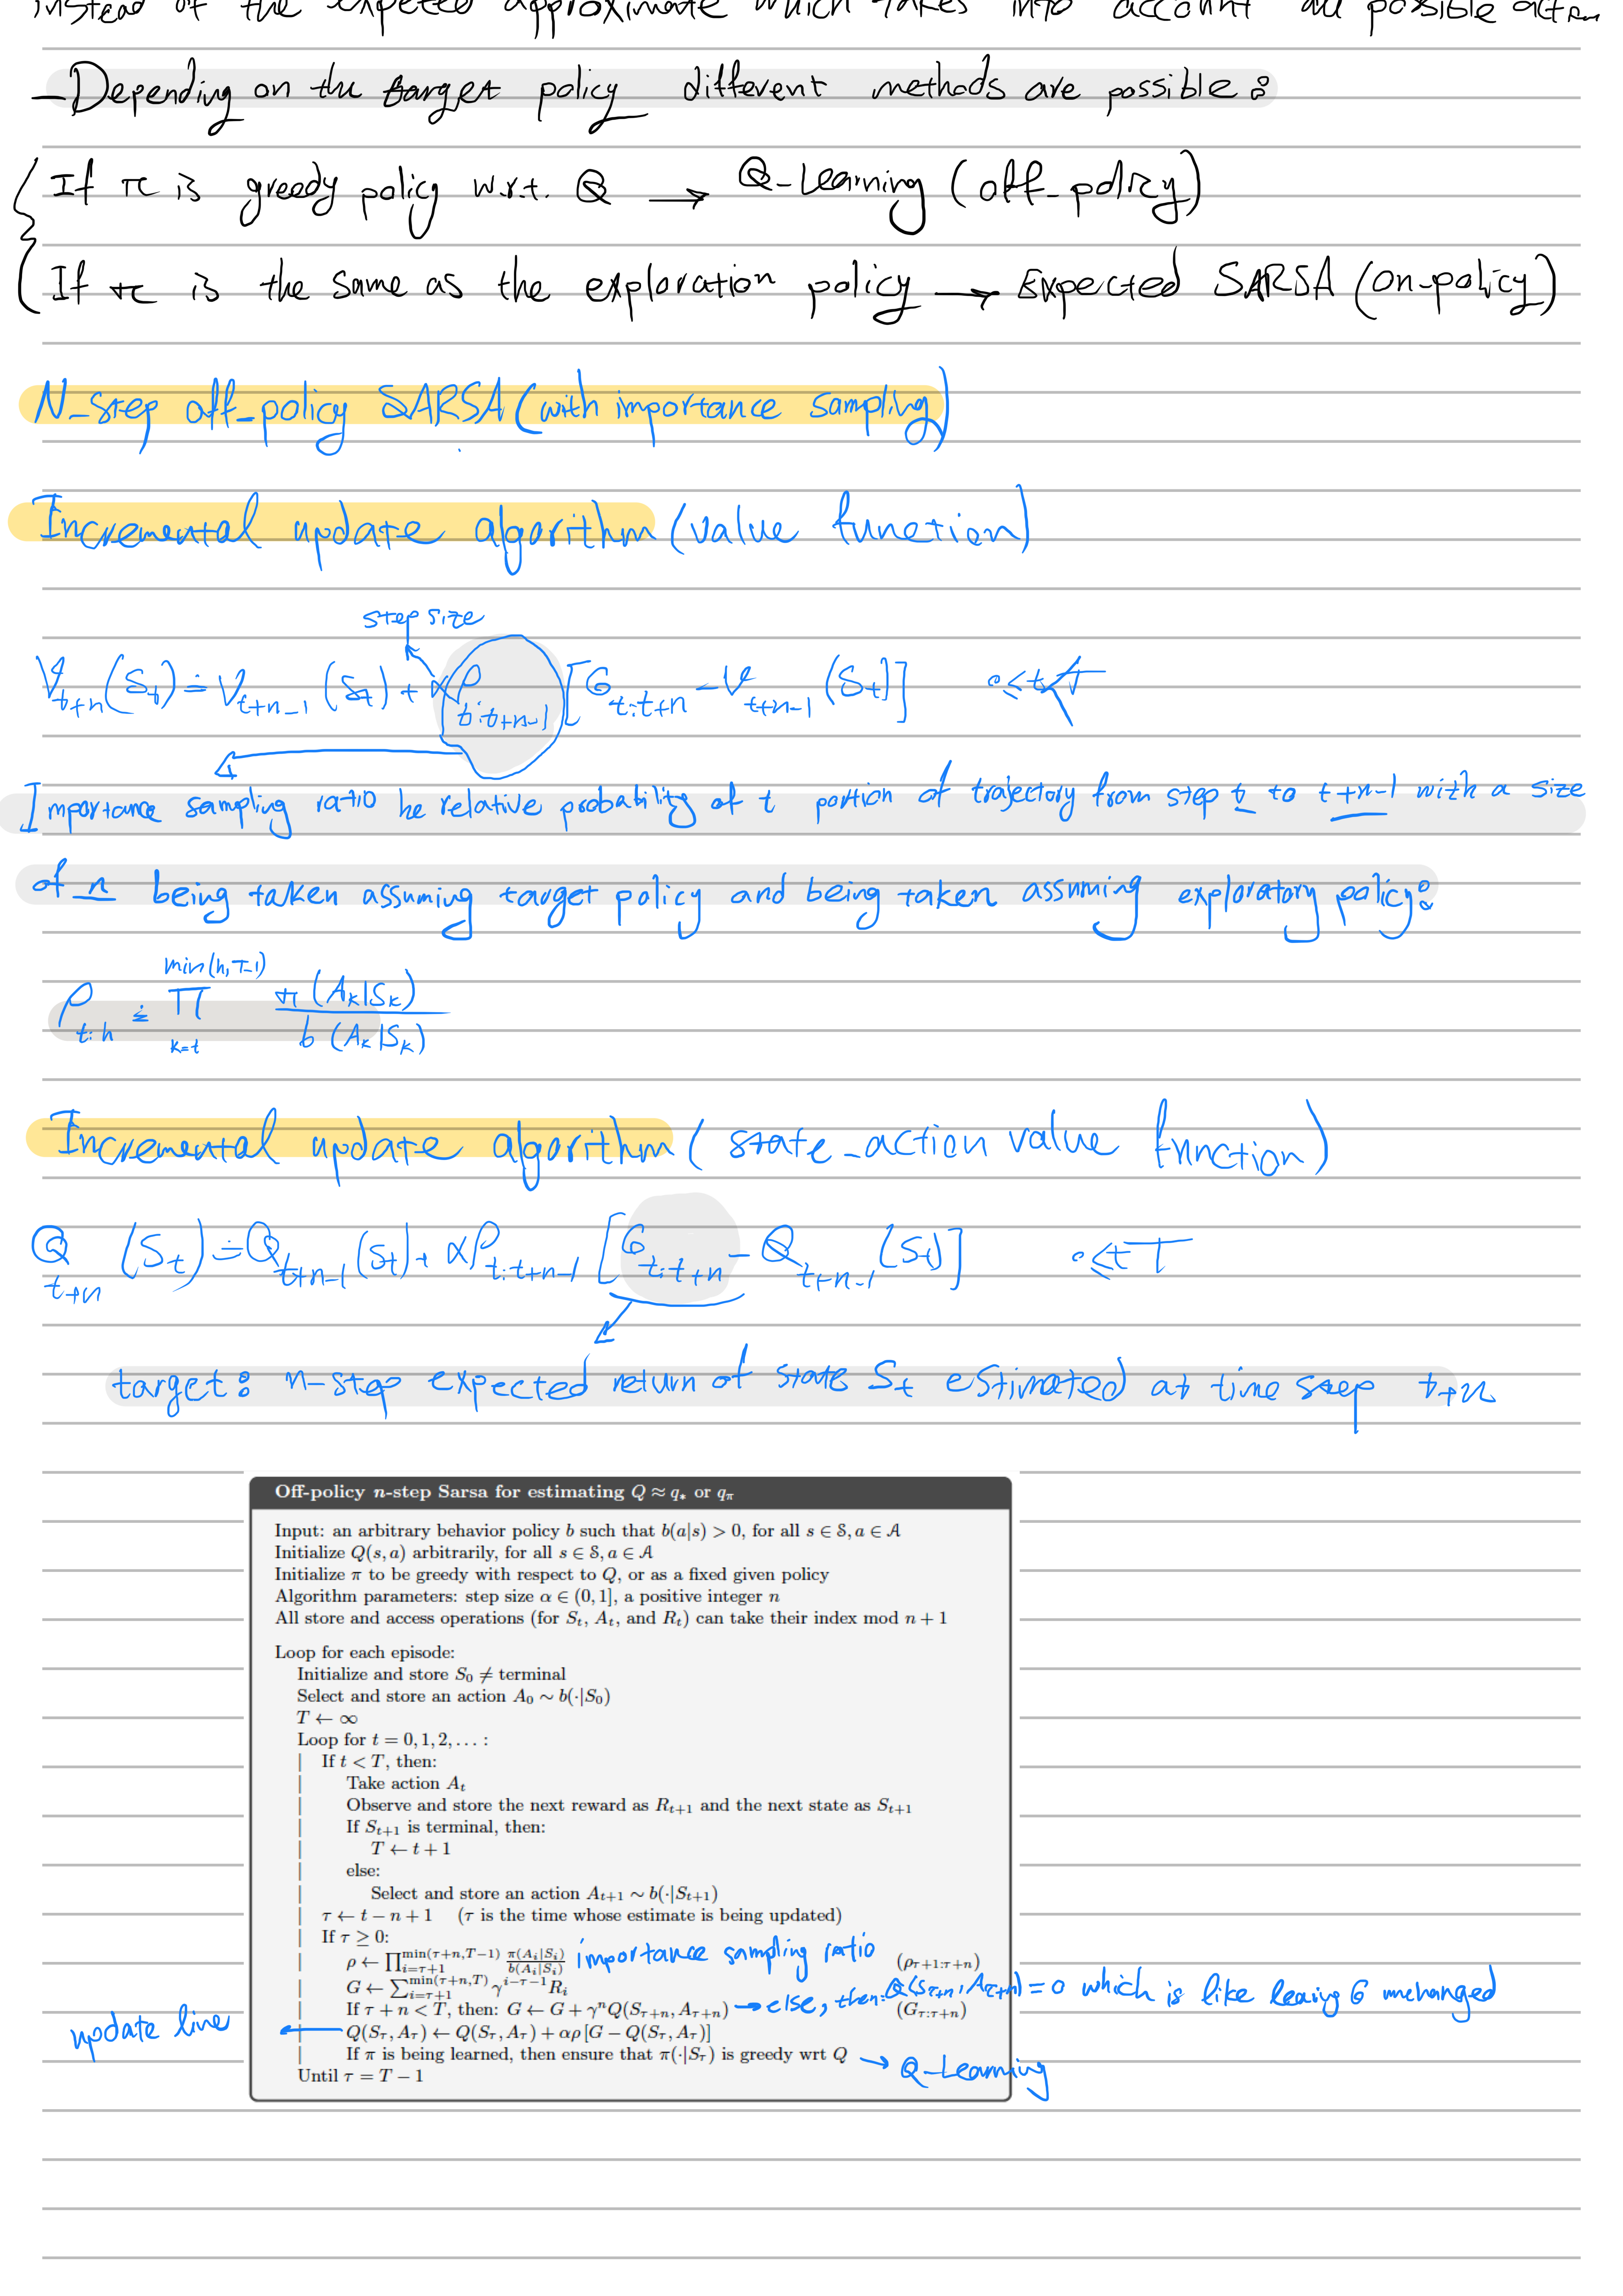 instead of the expected approximate which takes into account all possible action
– Depending on the target policy different methods are possible:
If π is greedy policy w.r.t. Q → Q-Learning (off-policy)
If π is the same as the exploration policy → Expected SARSA (on-policy)
N-step off-policy SARSA (with importance sampling)
Incremental update algorithm (value function)
step size
V_{t+n}(S_t) ≐ V_{t+n-1}(S_t) + α ρ_{t:t+n-1} [G_{t:t+n} - V_{t+n-1}(S_t)] 0≤t<T
Importance sampling ratio he relative probability of t portion of trajectory from step t to t+n-1 with a size
of n being taken assuming target policy and being taken assuming exploratory policy:
ρ_{t:h} ≐ ∏_{k=t}^{min(h,T-1)} π(A_k|S_k) / b(A_k|S_k)
Incremental update algorithm (state-action value function)
Q_{t+n}(S_t) ≐ Q_{t+n-1}(S_t) + α ρ_{t:t+n-1} [G_{t:t+n} - Q_{t+n-1}(S_t)] 0≤t T
target: n-step expected return of state S_t estimated at time step t+n
Off-policy n-step Sarsa for estimating Q ≈ q_* or q_π
Input: an arbitrary behavior policy b such that b(a|s) > 0, for all s ∈ 𝒮, a ∈ 𝒜
Initialize Q(s, a) arbitrarily, for all s ∈ 𝒮, a ∈ 𝒜
Initialize π to be greedy with respect to Q, or as a fixed given policy
Algorithm parameters: step size α ∈ (0, 1], a positive integer n
All store and access operations (for S_t, A_t, and R_t) can take their index mod n + 1
Loop for each episode:
Initialize and store S_0 ≠ terminal
Select and store an action A_0 ∼ b(·|S_0)
T ← ∞
Loop for t = 0, 1, 2, . . . :
| If t < T, then:
| Take action A_t
| Observe and store the next reward as R_{t+1} and the next state as S_{t+1}
| If S_{t+1} is terminal, then:
| T ← t + 1
| else:
| Select and store an action A_{t+1} ∼ b(·|S_{t+1})
| τ ← t − n + 1 (τ is the time whose estimate is being updated)
| If τ ≥ 0:
| ρ ← ∏_{i=τ+1}^{min(τ+n,T−1)} π(A_i|S_i) / b(A_i|S_i) importance sampling ratio (ρ_{τ+1:τ+n})
| G ← ∑_{i=τ+1}^{min(τ+n,T)} γ^{i−τ−1} R_i
| If τ + n < T, then: G ← G + γ^n Q(S_{τ+n}, A_{τ+n}) → else, then: Q(S_{τ+n}, A_{τ+n}) = 0 which is like leaving G unchanged (G_{τ:τ+n})
update line ← | Q(S_τ, A_τ) ← Q(S_τ, A_τ) + αρ [G − Q(S_τ, A_τ)]
| If π is being learned, then ensure that π(·|S_τ) is greedy wrt Q → Q-Learning
Until τ = T − 1